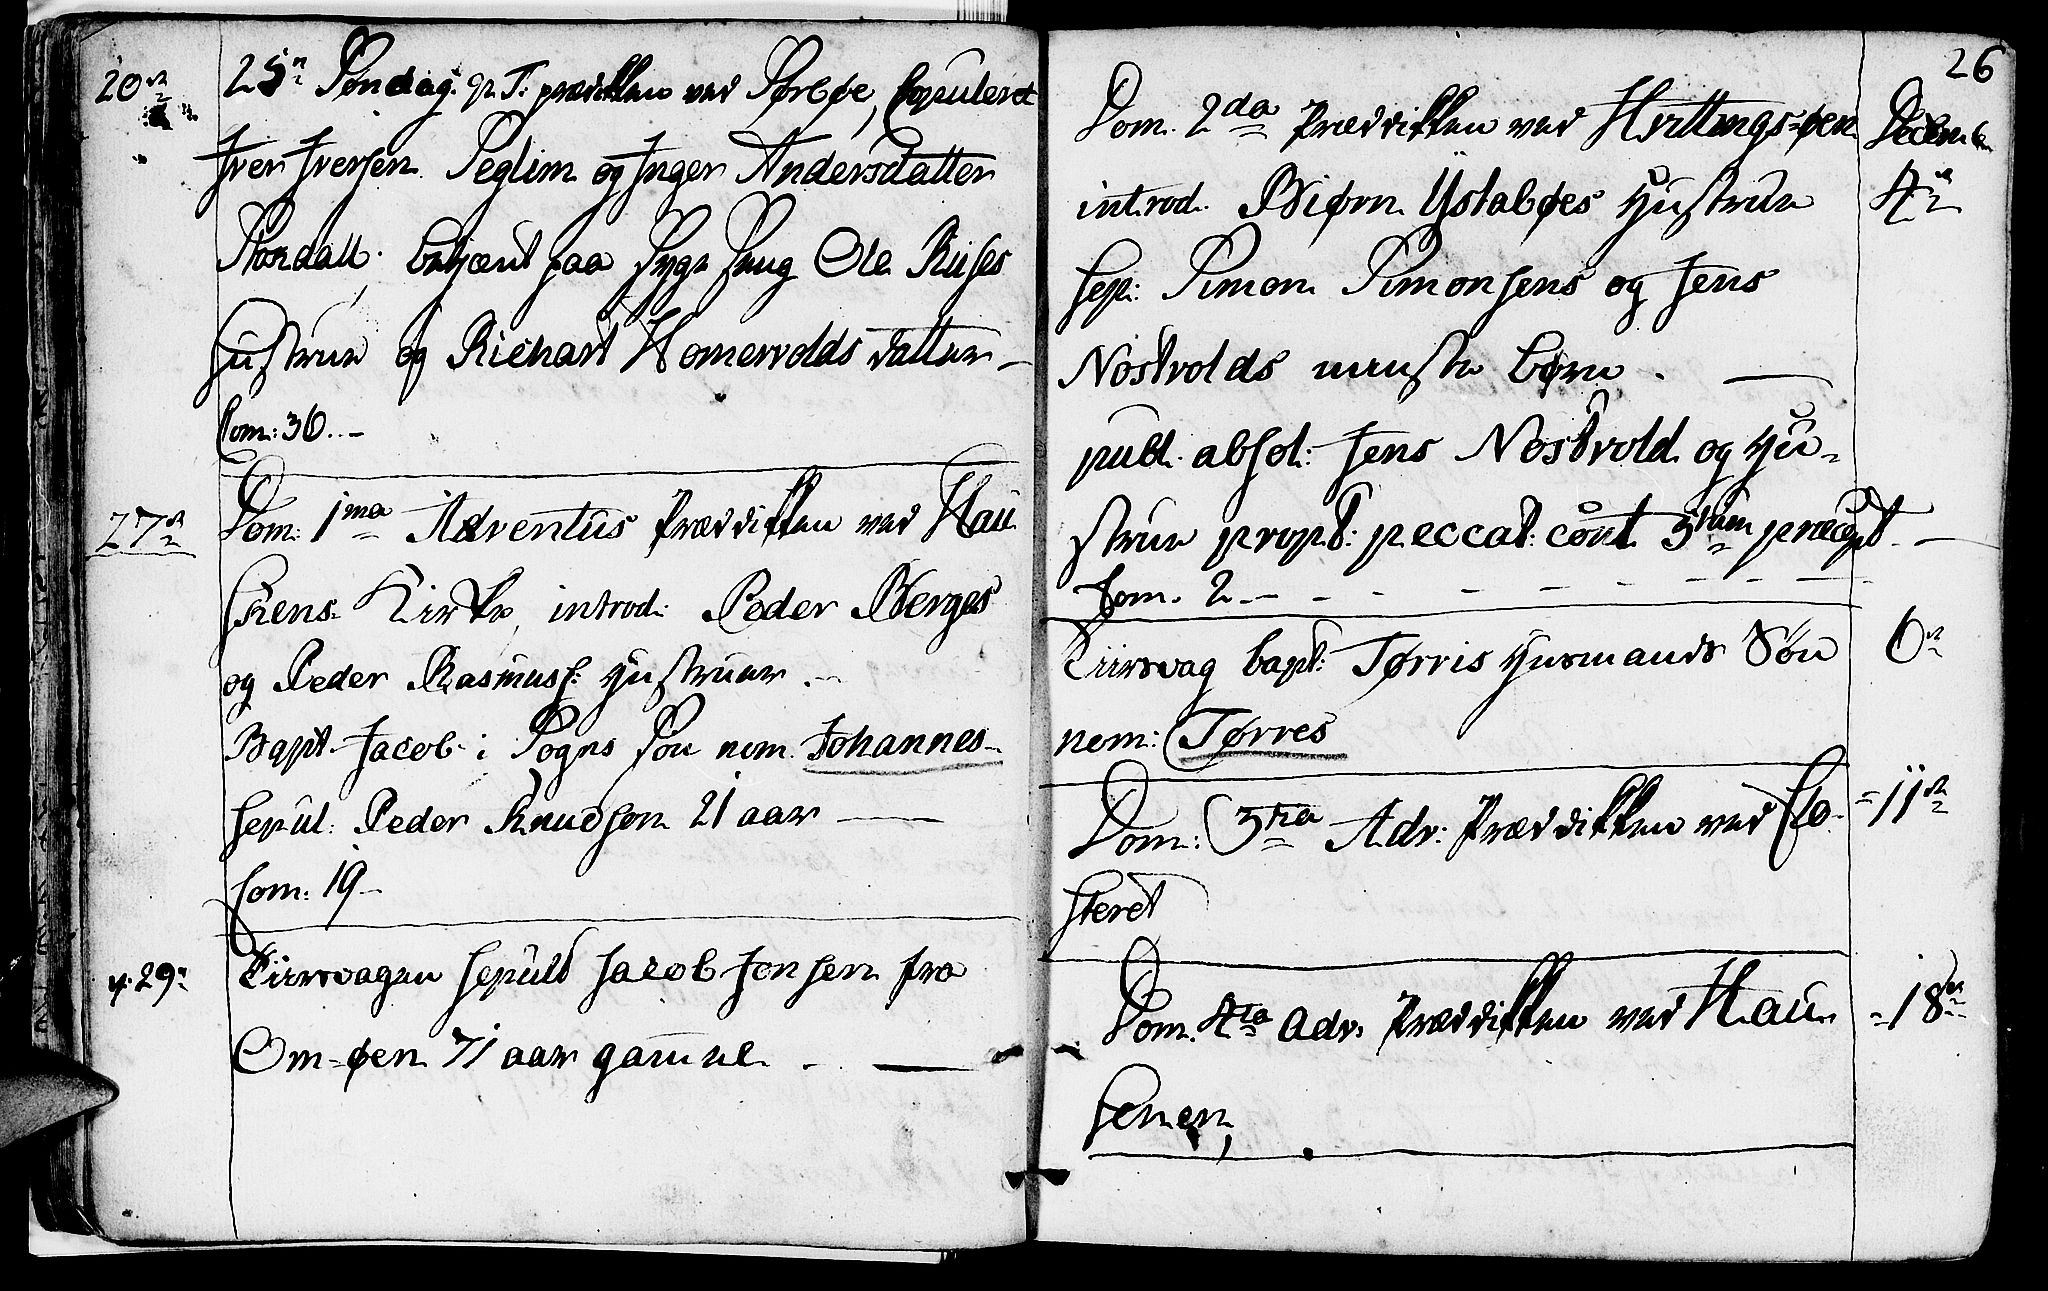 20de 25de Søndag p. T: prædikken ved Sørbøe, Copuleret
Iver Iversen Seglim og Inger Andersdatter
Stordall. betjent paa Syge Seng Ole Ruses
Hustrue og Richart Homervolds datter –
Com: 36. –
27de Dom: 1ma Adventus Prædikken ved Hau
skens Kirke, introd: Peder Berges
og Peder Rasmuss: Hustruer. –
Bapt. Jacob i Sogns Søn nom. Johannes –
sepul: Peder Knudsøn 21 aar –
Com: 19 –
29: Tiirsdagen sepult Jacob Jonsen fra
Om-øen 71 aar gamel. –
26
Dom. 2da Prædikken ved Hvittings-øen Decemb.
introd. Biørn Ystabøes Hustrue 4de
sep: Simon Simonsens og Jens
Nostvolds børn. –
publ. absol: Jens Nostvold og Hu-
strue propt: peccat: cont 3tium præcept. –
Com. 2 –
Tiirsdag bapt: Tørris Husmands Søn 6de
nom: Tørres
Dom: 3tia Adv: Prædikken ved Clo- 11de
steret
Dom. 4ta Adv. Prædikken ved Hau- 18de